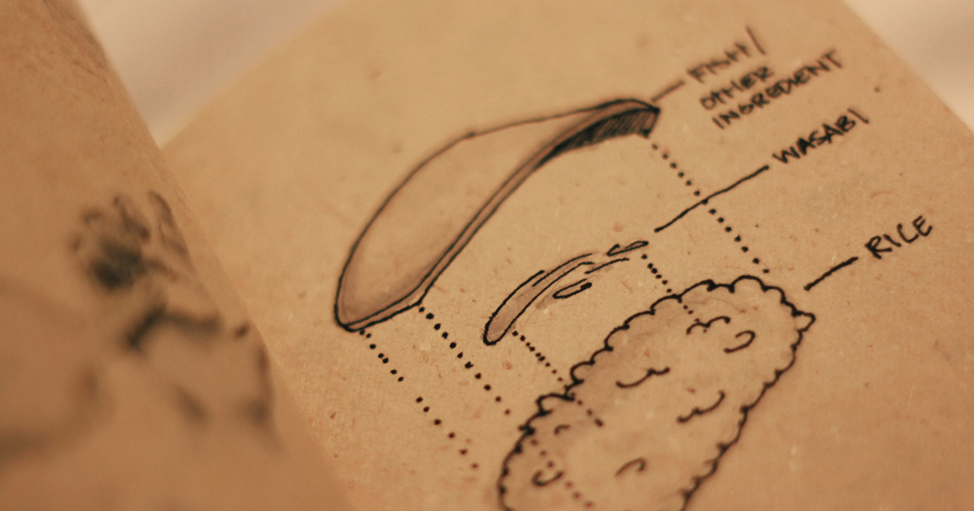 FISH/
OTHER
INGREDIENT
WASABI
RICE